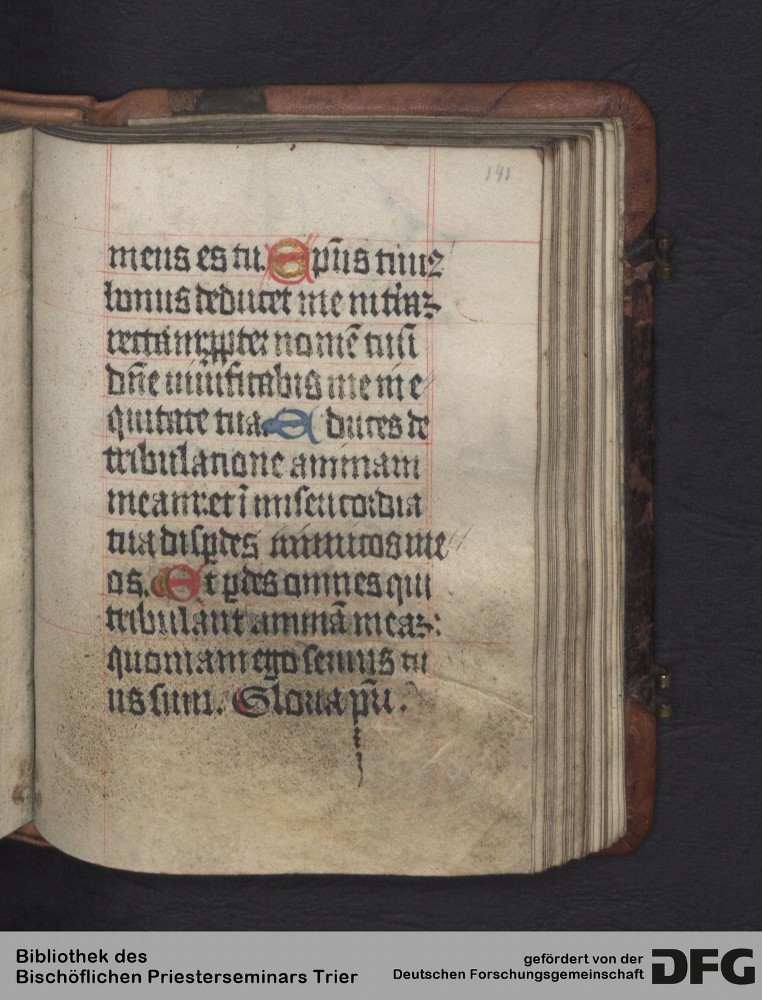 141
meus es tu. Sp̄us tuus
bonus deducet me in t̄raꝫ
rectam ꝓpter nomē tuū
dn̄e uiuificabis me in e
quitate tua. Educes de
tribulatione animam
meam: et ī misericordia
tua disꝑdes inimicos me
os. Et ꝑdes omnes qui
tribulant animā meaꝫ:
quoniam ego seruus tu
us sum. Gloria pr̄i.
Bibliothek des
Bischöflichen Priesterseminars Trier
gefördert von der
Deutschen Forschungsgemeinschaft
DFG